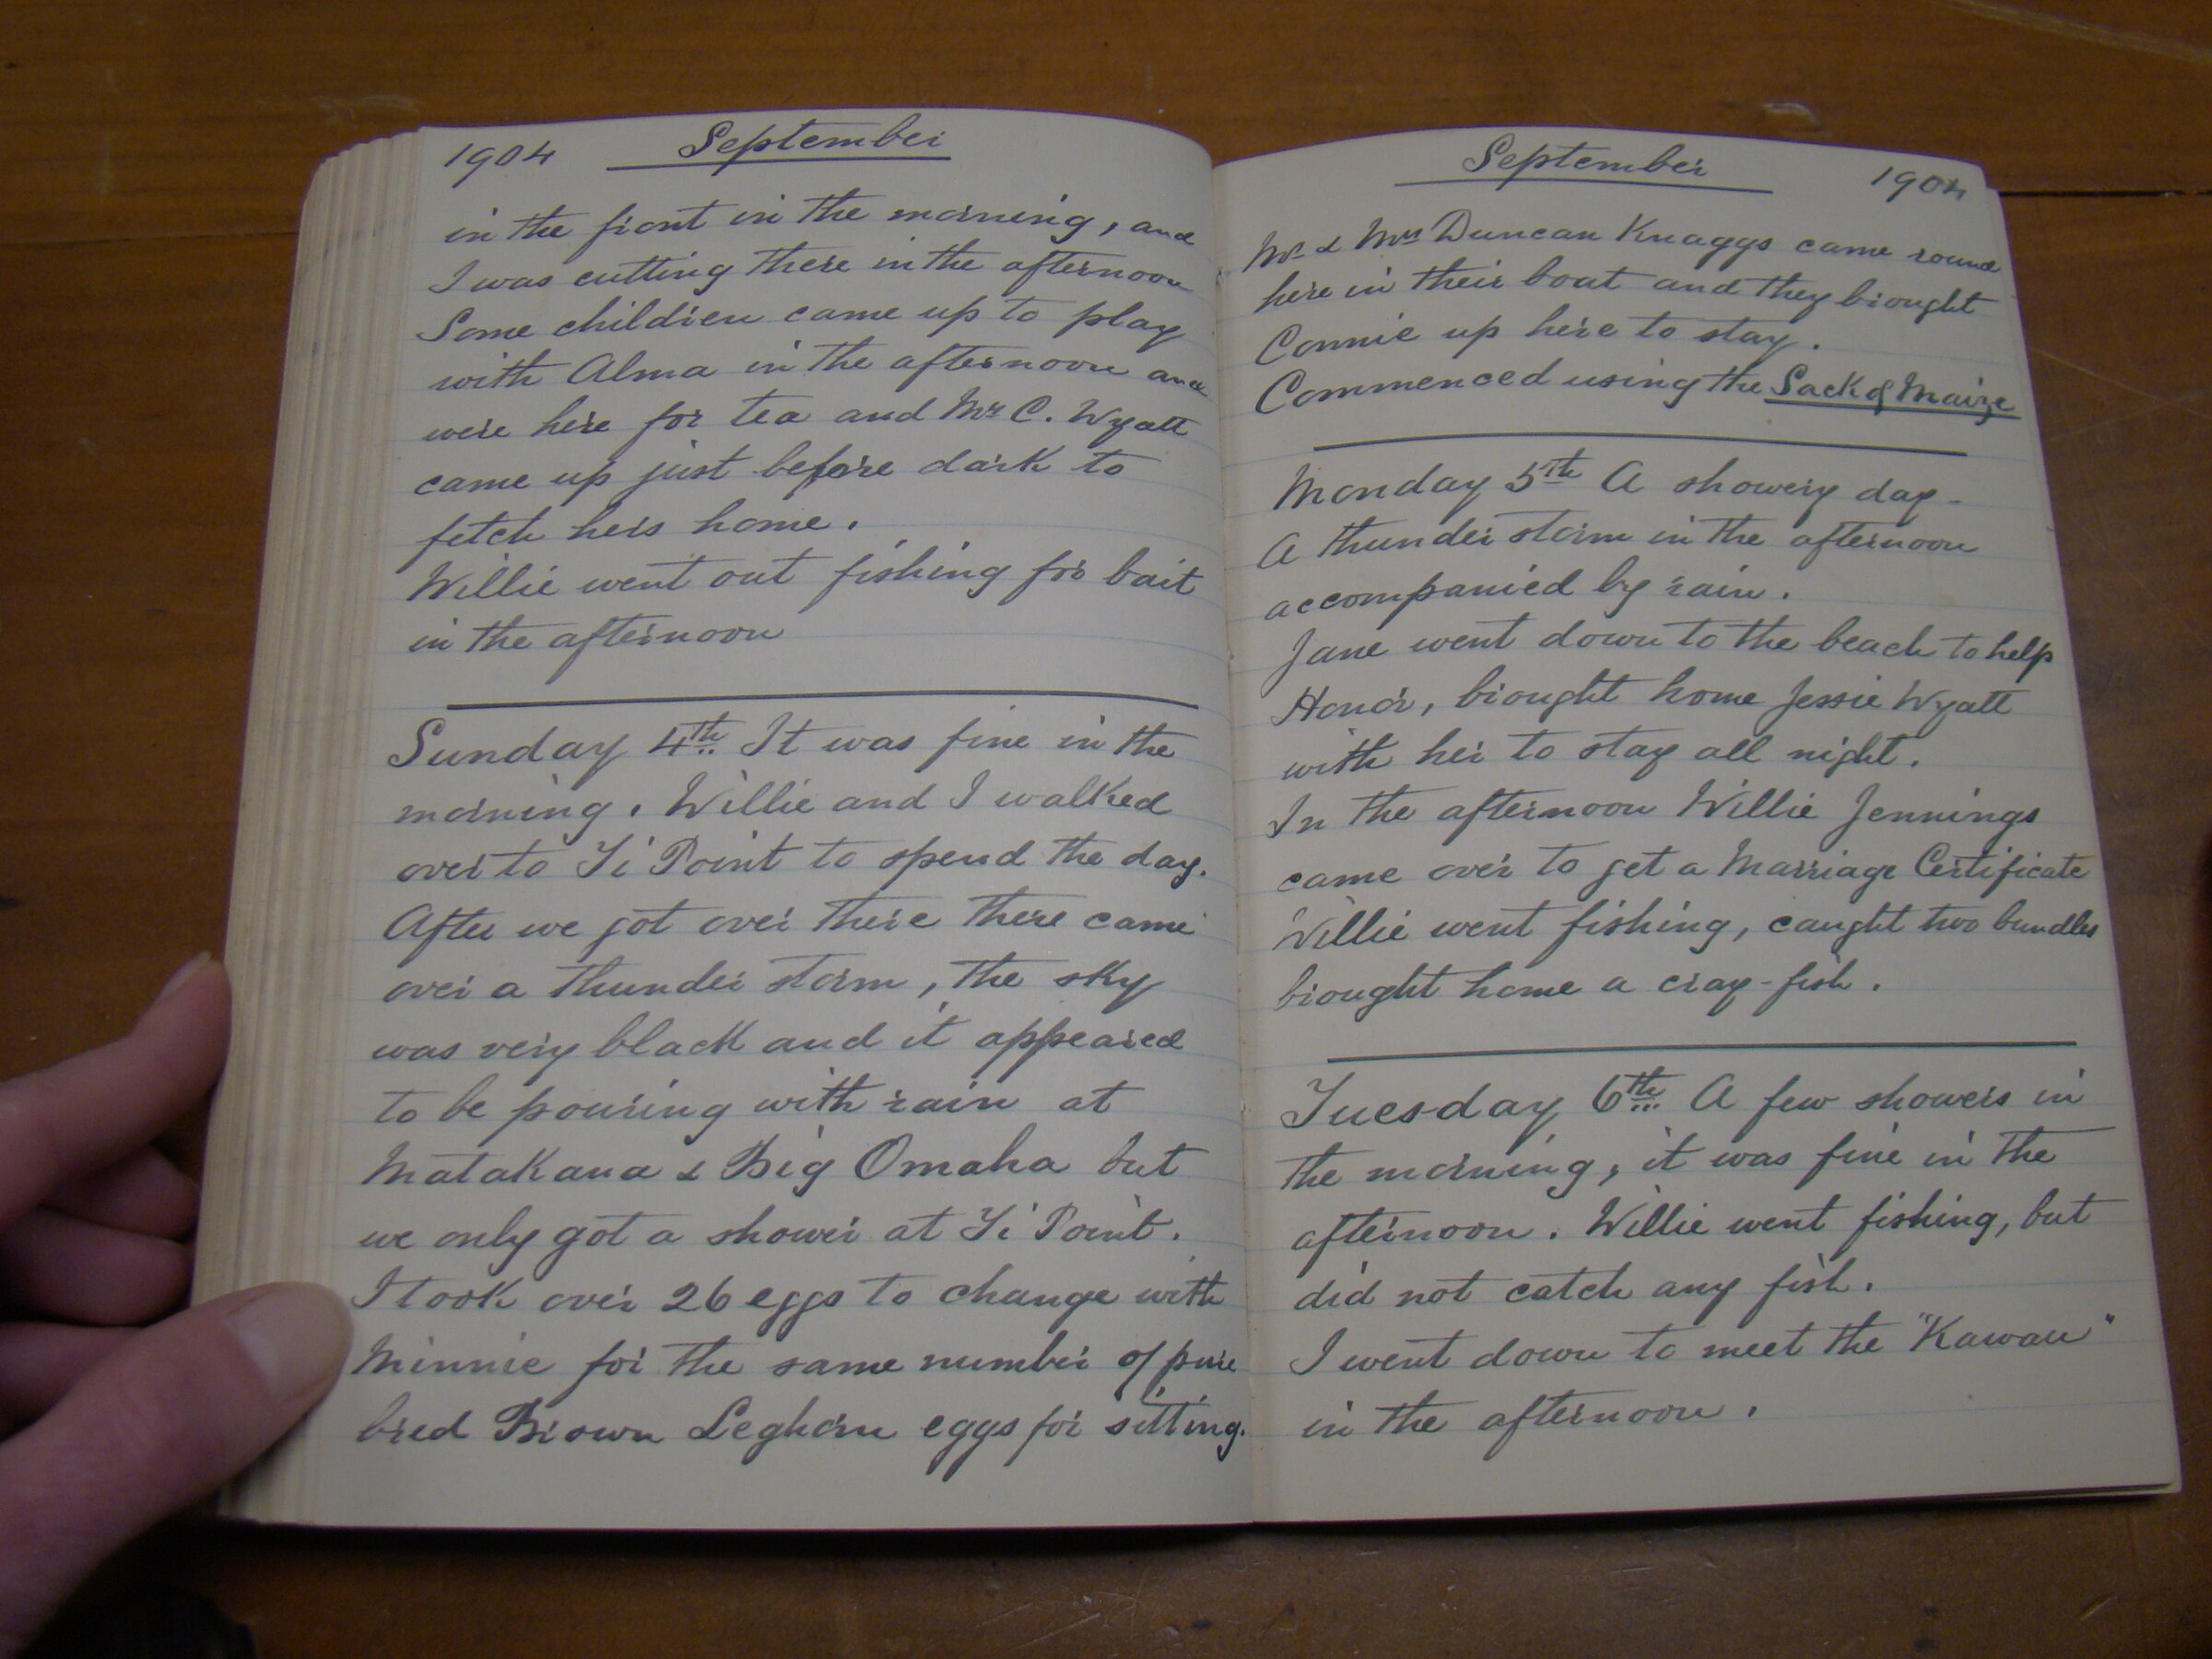 1904 September
in the front in the morning, and
I was cutting there in the afternoon
Some children came up to play
with Alma in the afternoon and
were here for tea and Mr C. Wyatt
came up just before dark to
fetch hers home.
Willie went out fishing for bait
in the afternoon
Sunday 4th It was fine in the
morning. Willie and I walked
over to Ti Point to spend the day.
After we got over there there came
over a thunder storm, the sky
was very black and it appeared
to be pouring with rain at
Matakana & Big Omaha but
we only got a shower at Ti Point.
I took over 26 eggs to change with
Minnie for the same number of pure
bred Brown Leghorn eggs for sitting.
September 1904
Mr & Mrs Duncan Knaggs came round
here in their boat and they brought
Connie up here to stay.
Commenced using the Sack of Maize
Monday 5th A showery day-
A thunder storm in the afternoon
accompanied by rain.
Jane went down to the beach to help
Honor, brought home Jessie Wyatt
with her to stay all night.
In the afternoon Willie Jennings
came over to get a Marriage Certificate
Willie went fishing, caught two bundles
brought home a cray-fish.
Tuesday 6th A few showers in
the morning, it was fine in the
afternoon. Willie went fishing, but
did not catch any fish.
I went down to meet the "Kawau"
in the afternoon.